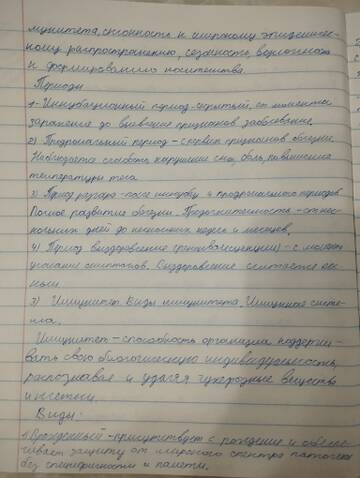 мунитета, склонность к широкому эпидемичес-
кому распространению, сезонность, возможность
к формированию носительства.
Периоды
1 - Инкубационный период - скрытый, от момента
заражения до выявление признаков заболевание.
2) Продромальный период - первых признаков болезни.
Наблюдается слабость, нарушение сна, боль, повышение
температуры тела
3) Период разгара - после инкубац. и продромального периодов
Полное развитие болезни. Продолжительность - от нес-
кольких дней до нескольких недель и месяцев.
4) Период выздоровление (реконвалесценции) - с момента
угасание симптомов. Выздоровление считается
3) Иммунитет. Виды иммунитета. Иммунная систе-
ма.
Иммунитет - способность организма поддержи-
вать свою биологическую индивидуальность,
распознавая и удаляя чужеродные вещества
и клетки.
Виды:
1) Врожденный - присутствует с рождения и обеспе-
чивает защиту от широкого спектра патогенов
без специфичности и памяти.